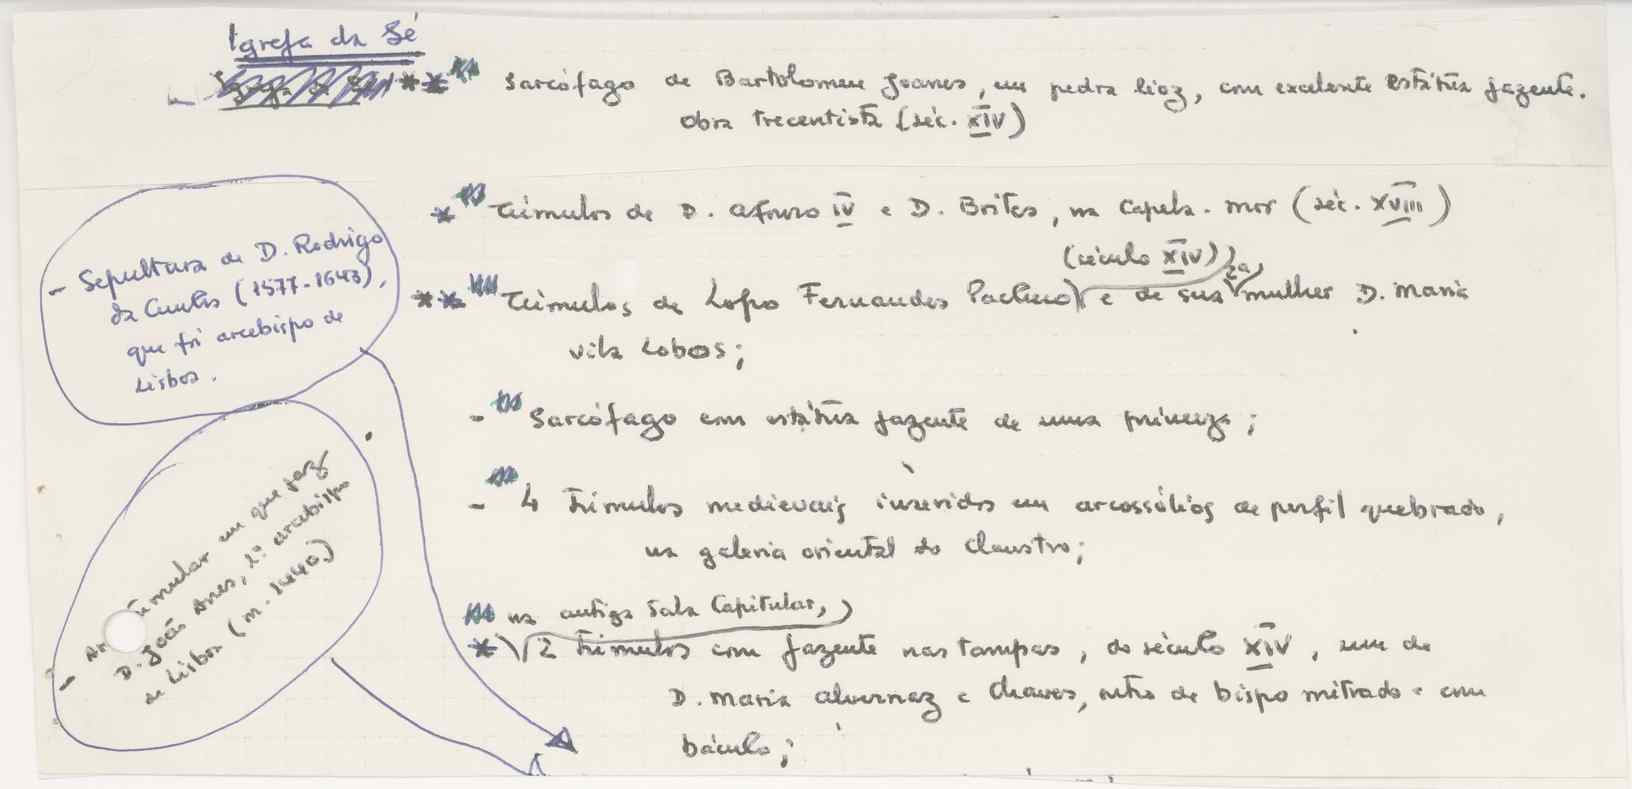 Igreja da Sé
** Sarcófago de Bartolomeu Joanes, em pedra lioz, com excelente estátua jazente.
Obra trecentista (séc. XIV)
* Túmulos de D. Afonso IV e D. Brites, na Capela-mor (séc. XVIII)
(século XIV)
** Túmulos de Lopo Fernandes Pacheco e de sua 2a mulher D. Maria
Vila Lobos;
- Sarcófago com estátua jazente de uma princeza;
- 4 Túmulos medievais inseridos em arcossólios de perfil quebrado,
na galeria oriental do Claustro;
na antiga Sala Capitular,
* 2 Túmulos com jazente nas tampas, do século XIV, um de
D. Maria Alvernaz e Chaves, outro de bispo mitrado e com
báculo;
- Sepultura de D. Rodrigo
da Cunha (1577-1643),
que foi arcebispo de
Lisboa.
- tumular em que jaz
D. João Anes, 1º arcebispo
de Lisboa (m. 1440)